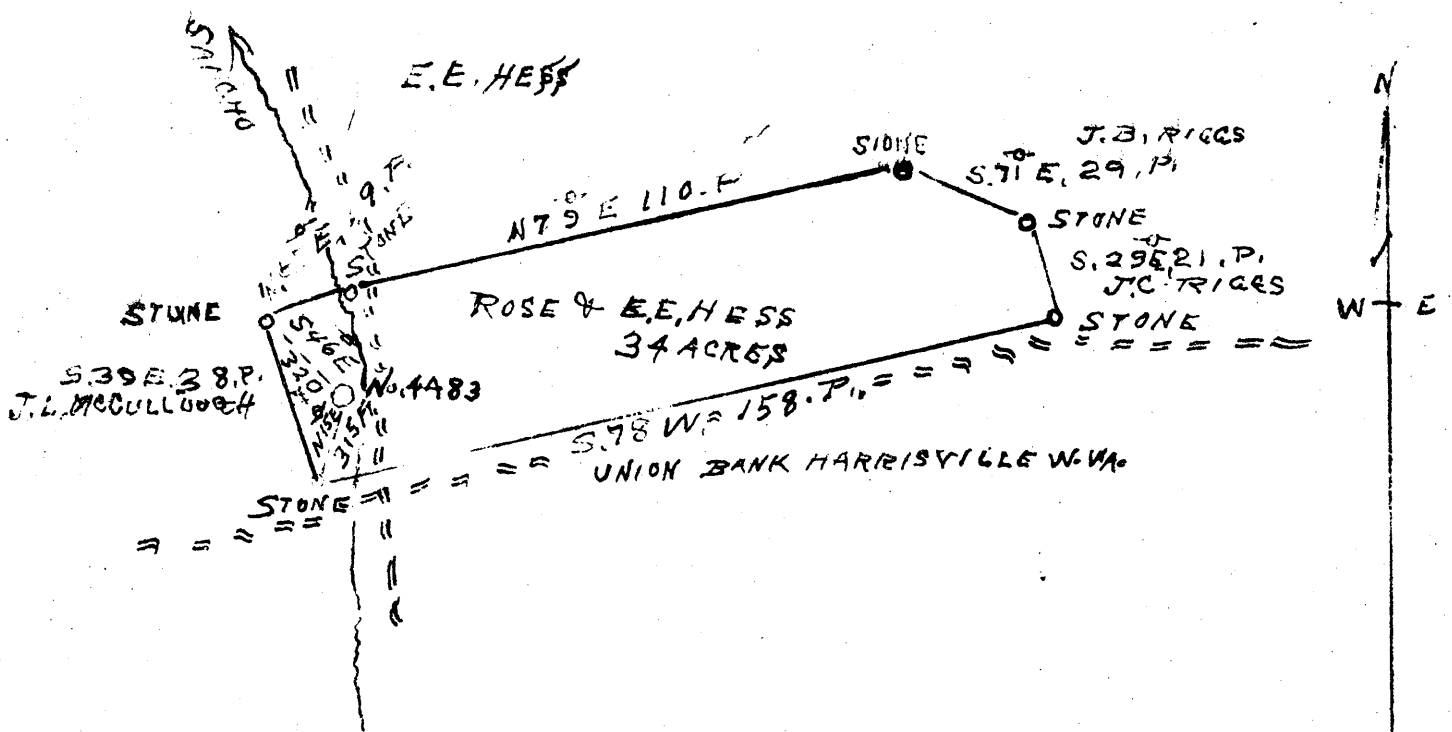 E.E. HESS
N
J.B. RIGGS
S.71° E. 29. P.
9. P.
STONE
N79° E 110. P
STONE
S.29°E.21.P.
J.C. RIGGS
STONE
ROSE & E.E. HESS
34 ACRES
STONE
W E
S.39 E. 38.P.
J.L. MCCULLOUGH
S46E
320
No.4483
315 F.
S.78 W= 158.P.
UNION BANK HARRISVILLE W.VA.
STONE